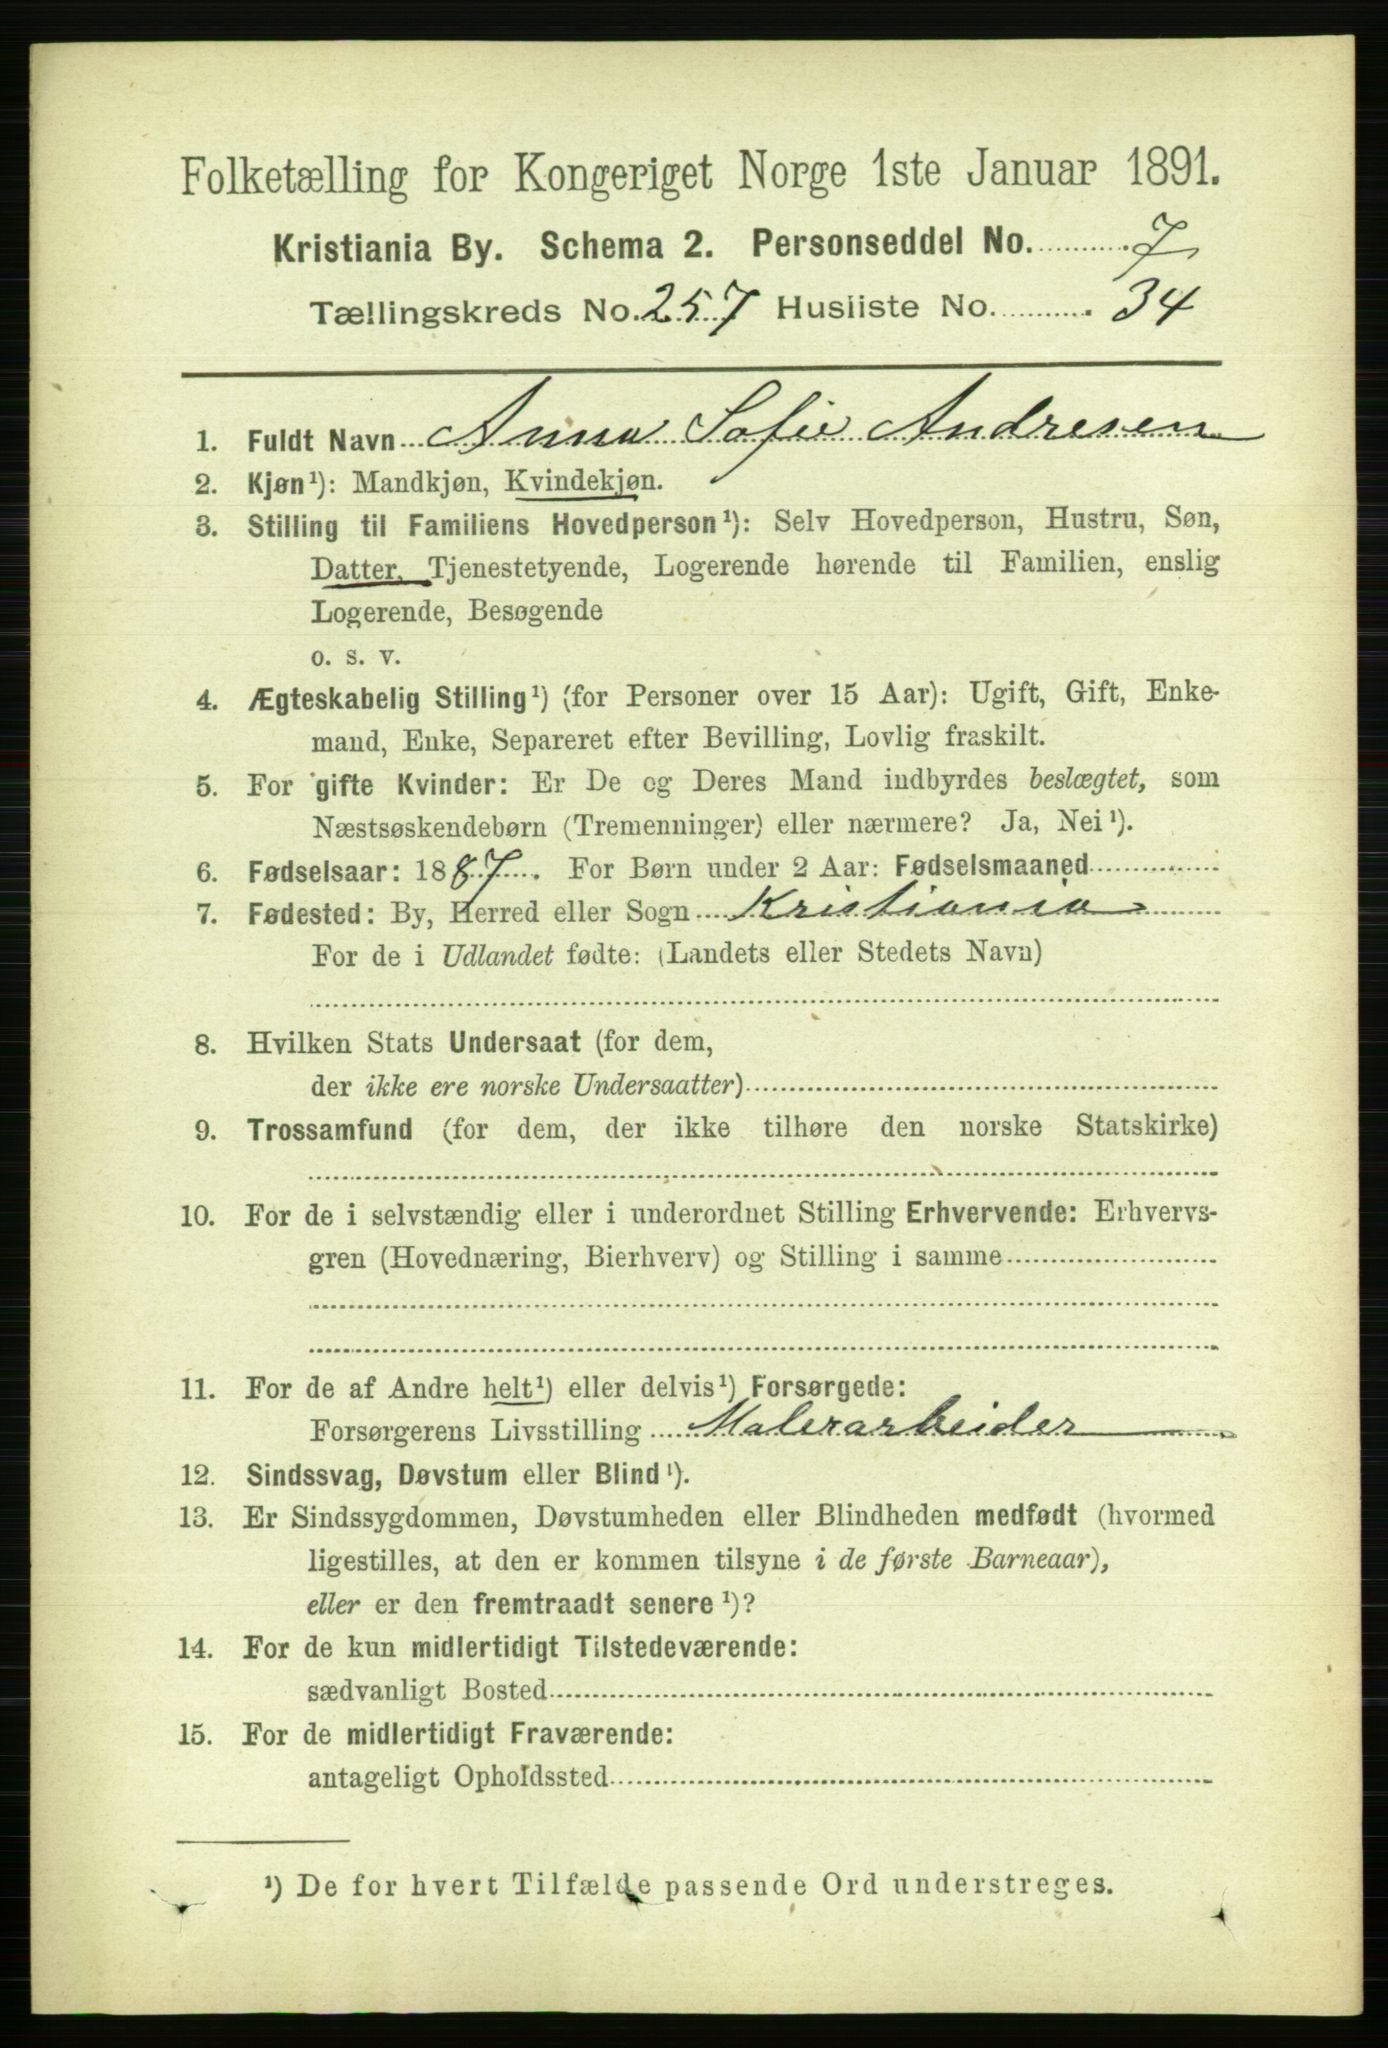 Folketælling for Kongeriget Norge 1ste Januar 1891.
Kristiania By. Schema 2. Personseddel No. 7
Tællingskreds No. 257 Husliste No. 34
1. Fuldt Navn Anna Sofie Andresen
2. Kjøn¹): Mandkjøn, Kvindekjøn.
3. Stilling til Familiens Hovedperson¹): Selv Hovedperson, Hustru, Søn,
Datter, Tjenestetyende, Logerende hørende til Familien, enslig
Logerende, Besøgende
o. s. v.
4. Ægteskabelig Stilling¹) (for Personer over 15 Aar): Ugift, Gift, Enke-
mand, Enke, Separeret efter Bevilling, Lovlig fraskilt.
5. For gifte Kvinder: Er De og Deres Mand indbyrdes beslægtet, som
Næstsøskendebørn (Tremenninger) eller nærmere? Ja, Nei¹).
6. Fødselsaar: 1887. For Børn under 2 Aar: Fødselsmaaned
7. Fødested: By, Herred eller Sogn Kristiania
For de i Udlandet fødte: (Landets eller Stedets Navn)
8. Hvilken Stats Undersaat (for dem,
der ikke ere norske Undersaatter)
9. Trossamfund (for dem, der ikke tilhøre den norske Statskirke)
10. For de i selvstændig eller i underordnet Stilling Erhvervende: Erhvervs-
gren (Hovednæring, Bierhverv) og Stilling i samme
11. For de af Andre helt¹) eller delvis¹) Forsørgede:
Forsørgerens Livsstilling Malerarbeider
12. Sindssvag, Døvstum eller Blind¹).
13. Er Sindssygdommen, Døvstumheden eller Blindheden medfødt (hvormed
ligestilles, at den er kommen tilsyne i de første Barneaar),
eller er den fremtraadt senere¹)?
14. For de kun midlertidigt Tilstedeværende:
sædvanligt Bosted
15. For de midlertidigt Fraværende:
antageligt Opholdssted
¹) De for hvert Tilfælde passende Ord understreges.